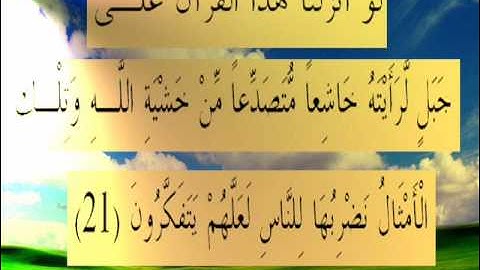 لَوْ أَنْزَلْنَا هَذَا الْقُرْآنَ عَلَــى
جَبَلٍ لَّرَأَيْتَهُ خَاشِعاً مُّتَصَدِّعاً مِّنْ خَشْيَةِ اللَّــهِ وَتِلْــكَ
الْأَمْثَالُ نَضْرِبُهَا لِلنَّاسِ لَعَلَّهُمْ يَتَفَكَّرُونَ (21)